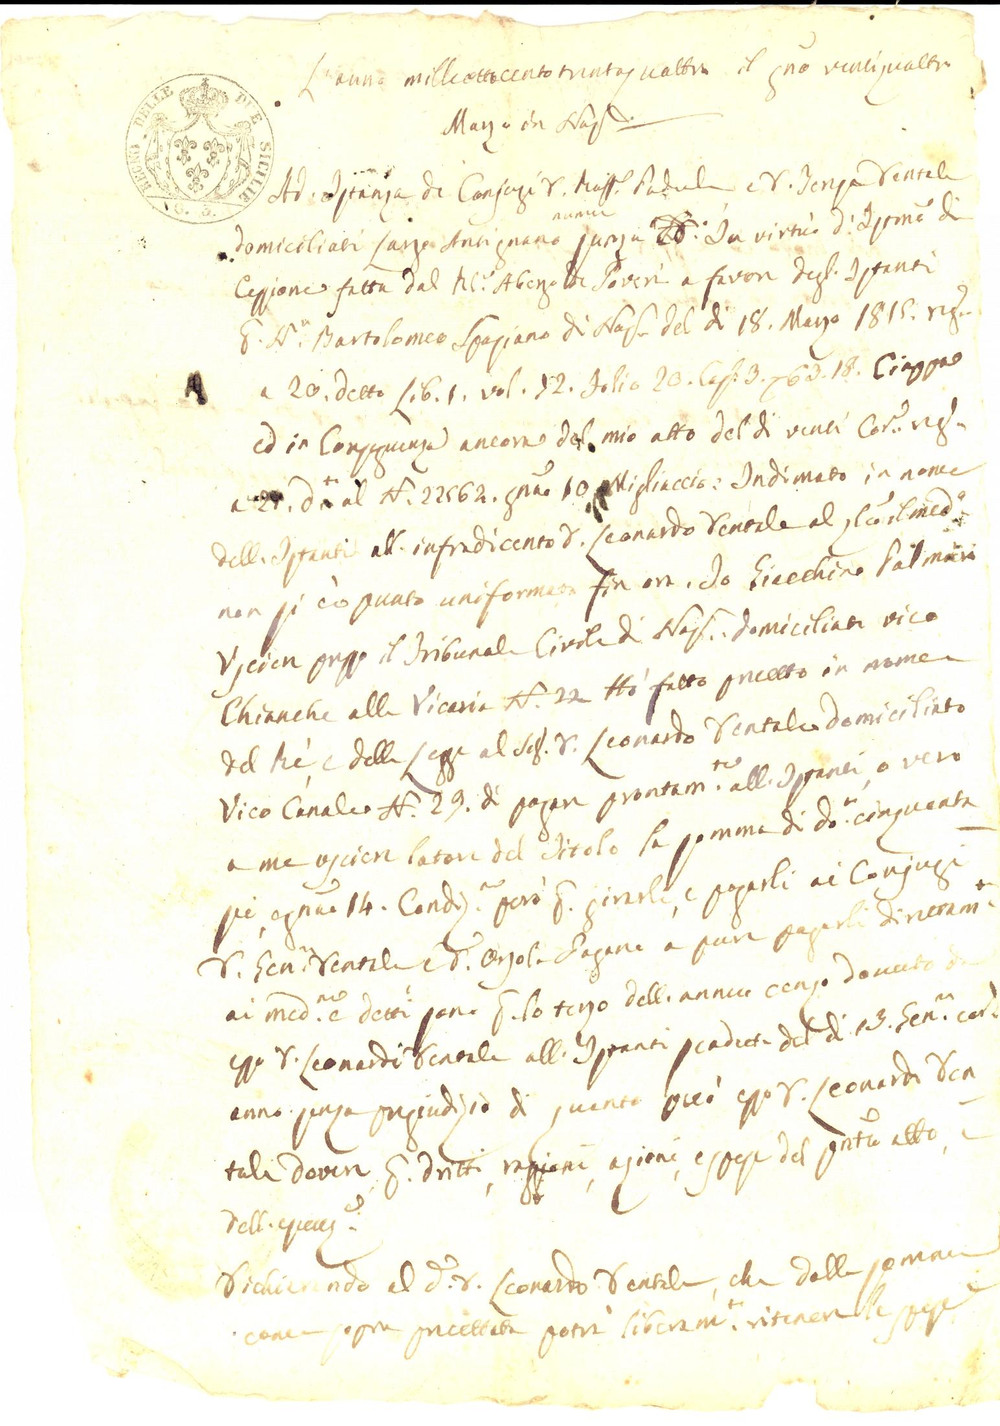 L'anno milleottocentotrentaquattro il gno ventiquattro
Marzo in Nap.
REGNO DELLE DUE SICILIE
G. 3.
Ad Istanza de Conjugi D. Raff. Padula e D. Tenza Ventale
domiciliati Largo Antignano senza numero In virtù d'Istrom. di
Cessione fatta dal Rl. Albergo de Poveri a favore degl'Istanti
p. Nr. Bartolomeo Spasiano di Nap. del dì 18. Marzo 1815. reg.
a 20. detto Lib. 1. vol. 12. folio 20. Cas. 3. 763. 18. Ciappa
ed in Conseguenza ancora del mio atto del dì venti Corr. reg.
a 21. do al N. 22562. gna 10 Migliaccio: Indimato in nome
dell'Istanti all'infradicendo D. Leonardo Ventale al il med.
non si è punto uniformato fin ora. Io Giacchino Palmieri
Usciere presso il Tribunale Civile di Nap. domiciliato vico
Chianche alla Vicaria N. 22 Hò fatto precetto in nome
del Rè, e della Legge al Sig. D. Leonardo Ventale domiciliato
Vico Canale N. 29. di pagare prontam. all'Istanti, o vero
a me usciere latore del Titolo la somma di do. cinquanta
sei, e gna 14. Condiz. però p. girarli, e pagarli ai Conjugi
D. Gen. Ventale e D. Orsola Pagano o pure pagarli direttam.
ai med. e detti sono p. lo terzo dell'annuo cenzo dovuto da
esso D. Leonardo Ventale all'Istanti scaduto del dì 13. Gen. cor.
anno senza pregiudizio di quanto però esso D. Leonardo Ven
tale dovere p. dritti, ragioni, azioni, e spese del pnte atto, e
dell'esecuz.
Dichiarando al do. D. Leonardo Ventale, che dalla somma
come sopra precettata potrà liberam. ritenere le spese